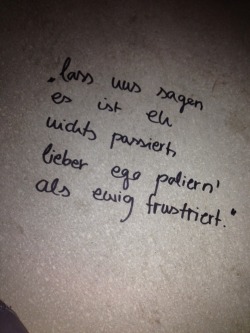 „lass uns sagen
es ist eh
nichts passiert,
lieber ego poliern'
als ewig frustriert."